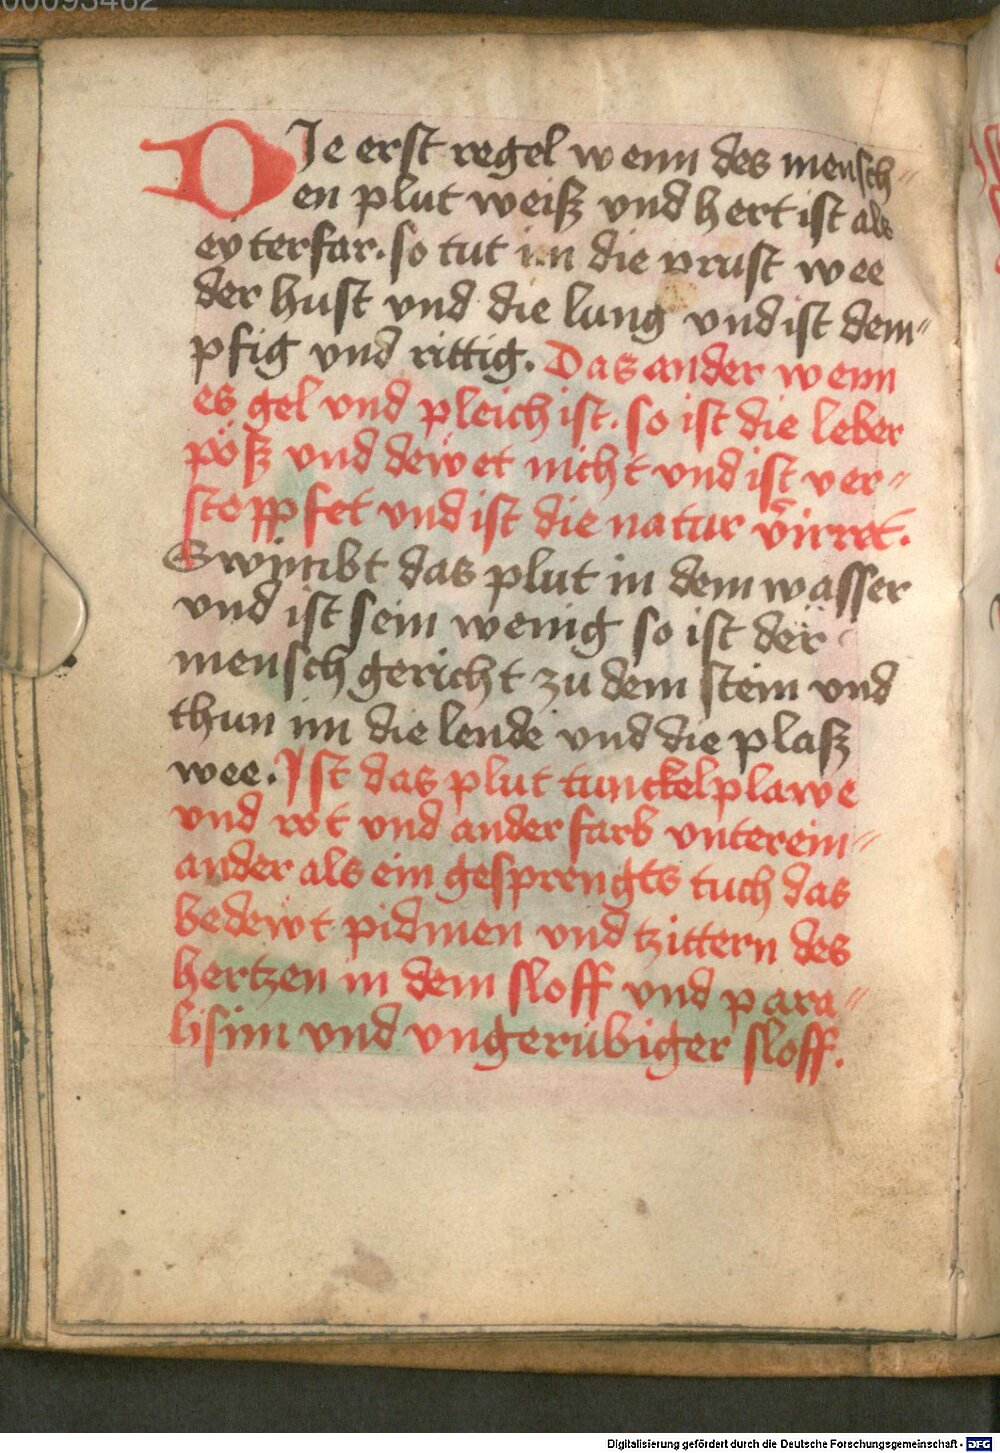 00093482
DIe erst regel wenn des mensch=
en plut weiß vnd hert ist als
eyterfar. so tut im die prust wee
der hust vnd die lung vnd ist dem=
pfig vnd rittig. Das ander wenn
es gel vnd pleich ist. so ist die leber
pöß vnd dewet nicht vnd ist ver=
stopfet vnd ist die natur v̄irret.
Swimbt das plut in dem wasser
vnd ist sein wenig so ist der
mensch gericht zu dem stein vnd
thun im die lende vnd die plasz
wee. Ist das plut tunckelplawe
vnd rot vnd ander farb vnterein=
ander als ein gesprengts tuch das
bedewt pidmen vnd tzittern des
hertzen in dem sloff vnd para=
lisim vnd vngerübiger sloff.
Digitalisierung gefördert durch die Deutsche Forschungsgemeinschaft - DFG